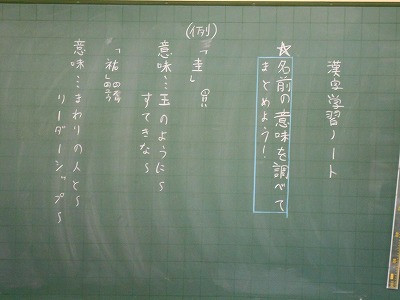 漢字学習ノート
☆名前の意味を調べて
まとめよう！
(例)
「圭」
意味…玉のように～
すてきな～
「祐」
意味…まわりの人と～
リーダーシップ～